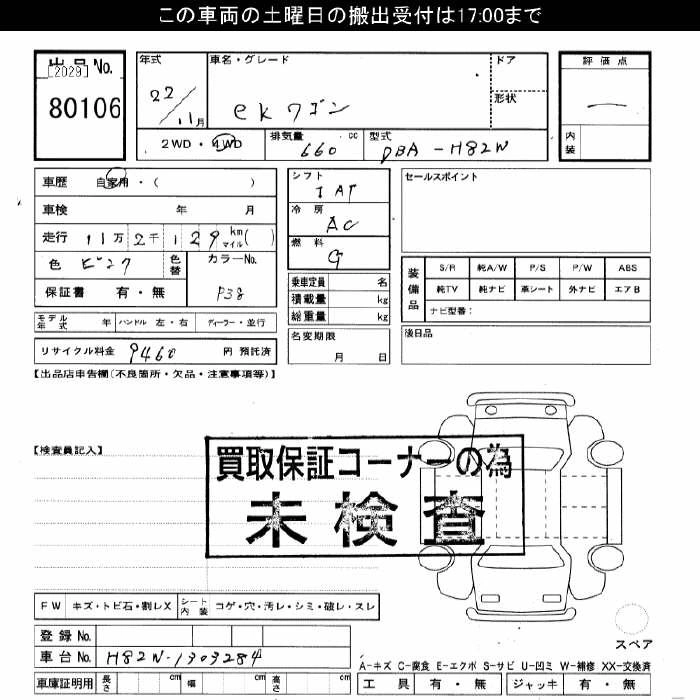 この車両の土曜日の搬出受付は17:00まで
出品No.
[2029]
80106
年式 22/11月
車名・グレード ekワゴン
ドア
形状
評価点 —
内装
2WD・4WD
排気量 660 cc
型式 DBA-H82W
車歴 自家用・( )
車検 年 月
走行 11万2千129km マイル( )
色 ピンク 色替
カラーNo. P38
保証書 有・無
シフト IAT
冷房 AC
燃料 G
乗車定員 名
積載量 kg
総重量 kg
セールスポイント
装備品
S/R 純A/W P/S P/W ABS
純TV 純ナビ 革シート 外ナビ エアB
ナビ型番:
モデル年式 年 ハンドル 左・右 ディーラー・並行
名変期限 月 日
後日品
リサイクル料金 9460 円 預託済
【出品店申告欄(不良箇所・欠品・注意事項等)】
【検査員記入】
買取保証コーナーの為
未検査
FW キズ・トビ石・割レX シート内装 コゲ・穴・汚レ・シミ・破レ・スレ
スペア
登録No.
車台No. H82W-1303284
A-キズ C-腐食 E-エクボ S-サビ U-凹ミ W-補修 XX-交換済
車庫証明用 長さ cm 幅 cm 高さ cm
工具 有・無 ジャッキ 有・無